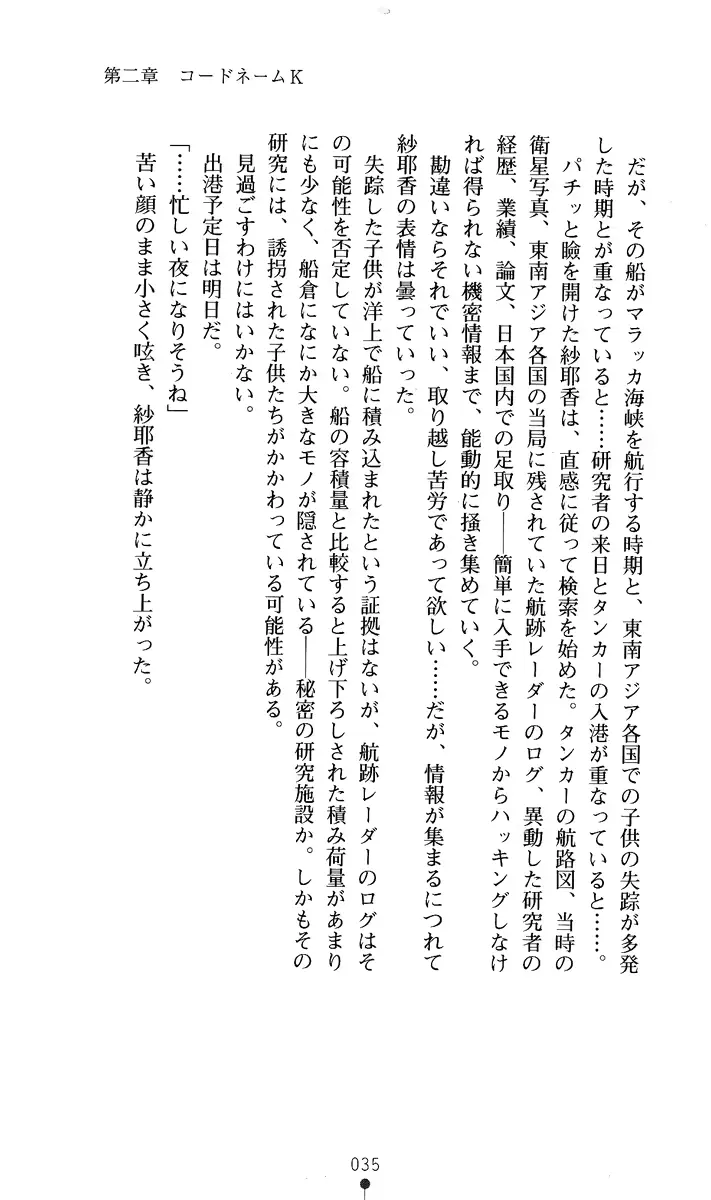 第二章　コードネームK
だが、その船がマラッカ海峡を航行する時期と、東南アジア各国での子供の失踪が多発
した時期とが重なっていると……研究者の来日とタンカーの入港が重なっていると……。
パチッと瞼を開けた紗耶香は、直感に従って検索を始めた。タンカーの航路図、当時の
衛星写真、東南アジア各国の当局に残されていた航跡レーダーのログ、異動した研究者の
経歴、業績、論文、日本国内での足取り――簡単に入手できるモノからハッキングしなけ
れば得られない機密情報まで、能動的に掻き集めていく。
勘違いならそれでいい、取り越し苦労であって欲しい……だが、情報が集まるにつれて
紗耶香の表情は曇っていった。
失踪した子供が洋上で船に積み込まれたという証拠はないが、航跡レーダーのログはそ
の可能性を否定していない。船の容積量と比較すると上げ下ろしされた積み荷量があまり
にも少なく、船倉になにか大きなモノが隠されている――秘密の研究施設か。しかもその
研究には、誘拐された子供たちがかかわっている可能性がある。
見過ごすわけにはいかない。
出港予定日は明日だ。
「……忙しい夜になりそうね」
苦い顔のまま小さく呟き、紗耶香は静かに立ち上がった。
035